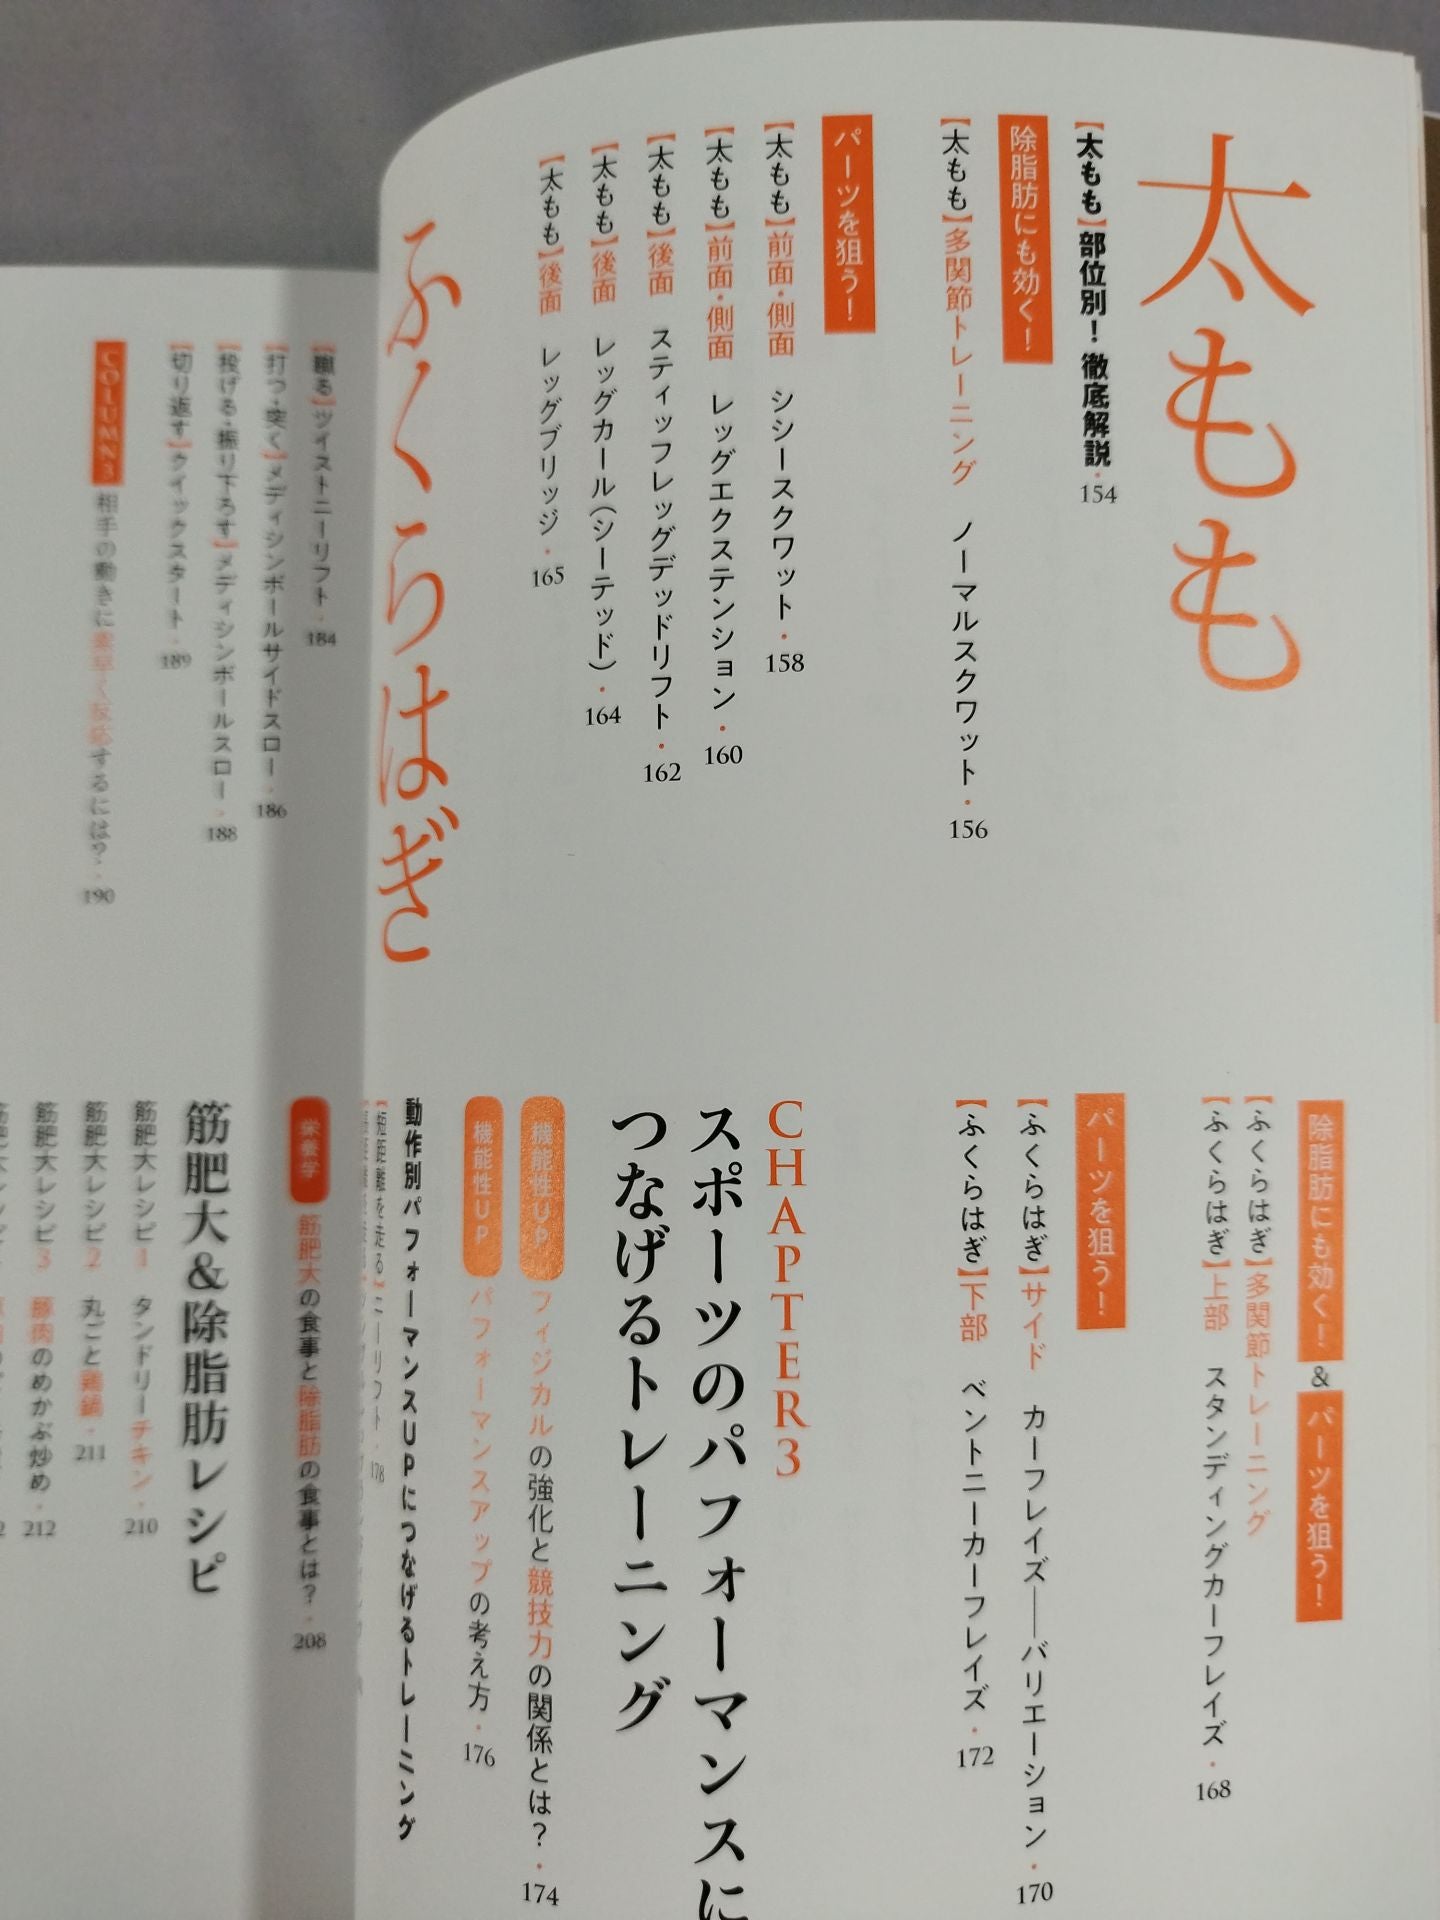 太もも
【太もも】部位別！徹底解説・154
除脂肪にも効く！
【太もも】多関節トレーニング　ノーマルスクワット・156
パーツを狙う！
【太もも】前面・側面　シシースクワット・158
【太もも】前面・側面　レッグエクステンション・160
【太もも】後面　スティッフレッグデッドリフト・162
【太もも】後面　レッグカール（シーテッド）・164
【太もも】後面　レッグブリッジ・165
ふくらはぎ
除脂肪にも効く！&パーツを狙う！
【ふくらはぎ】多関節トレーニング
【ふくらはぎ】上部　スタンディングカーフレイズ・168
パーツを狙う！
【ふくらはぎ】サイド　カーフレイズ――バリエーション・170
【ふくらはぎ】下部　ベントニーカーフレイズ・172
CHAPTER3
スポーツのパフォーマンスに
つなげるトレーニング
機能性UP　フィジカルの強化と競技力の関係とは？・174
機能性UP　パフォーマンスアップの考え方・176
動作別パフォーマンスUPにつなげるトレーニング
【短距離を走る】ニーリフト・178
【蹴る】ツイストニーリフト・184
【打つ・突く】メディシンボールサイドスロー・186
【投げる・振り下ろす】メディシンボールスロー・188
【切り返す】クイックスタート・189
COLUMN3　相手の動きに素早く反応するには？・190
栄養学　筋肥大の食事と除脂肪の食事とは？・208
筋肥大&除脂肪レシピ
筋肥大レシピ1　タンドリーチキン・210
筋肥大レシピ2　丸ごと鶏鍋・211
筋肥大レシピ3　豚肉のめかぶ炒め・212